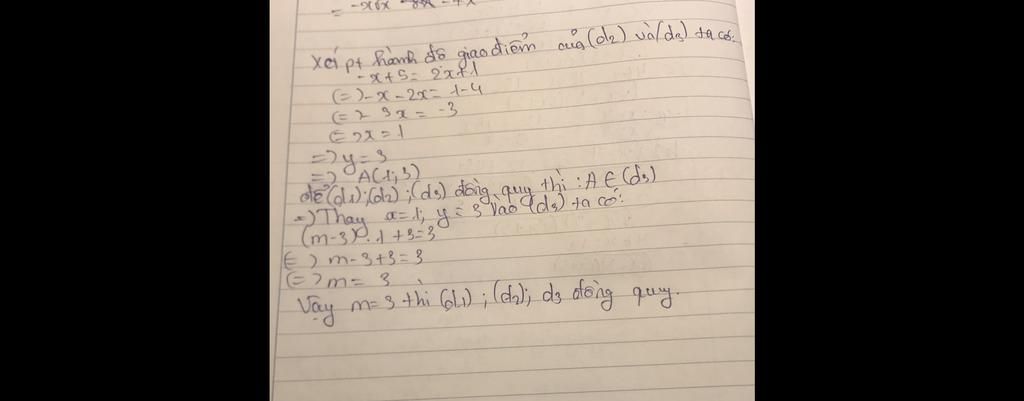 Xét pt hoành độ giao điểm của (d2) và (d3) ta có:
-x+5= 2x+1
(=) -x-2x= 1-4
(=) 3x = -3
(=) x = 1
=> y = 3
=> A(1;3)
để (d1); (d2); (d3) đồng quy thì: A ∈ (d3)
=) Thay x=1; y = 3 vào (d3) ta có:
(m-3).1+3=3
(=) m-3+3=3
(=) m = 3
Vậy m=3 thì (d1); (d2); d3 đồng quy.